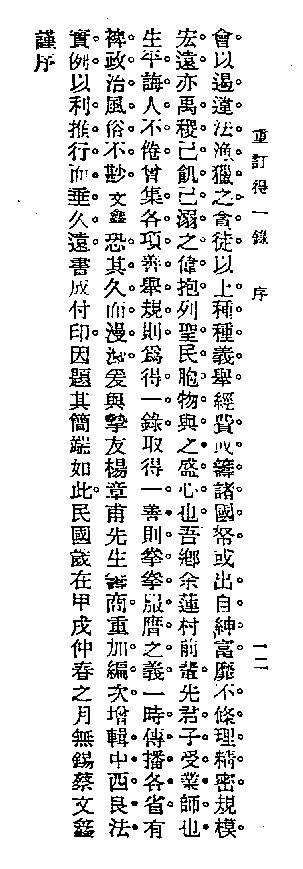 重訂得一錄 序
一二
會以遏違法漁獵之貪徒以上種種義舉經費或籌諸國帑或出自紳富靡不條理精密規模。
宏遠亦禹稷己飢己溺之偉抱列聖民胞物與之盛心也吾鄉余蓮村前輩先君子受業師也。
生平誨人不倦曾集各項善舉規則爲得一錄取得一善則拳拳服膺之義一時傳播各省有
裨政治風俗不尠文鑫恐其久而漫漶爰與摯友楊章甫先生商重加編次增輯中西良法
實例以利推行而垂久遠書成付印因題其簡端如此民國歲在甲戌仲春之月無錫蔡文鑫
謹序